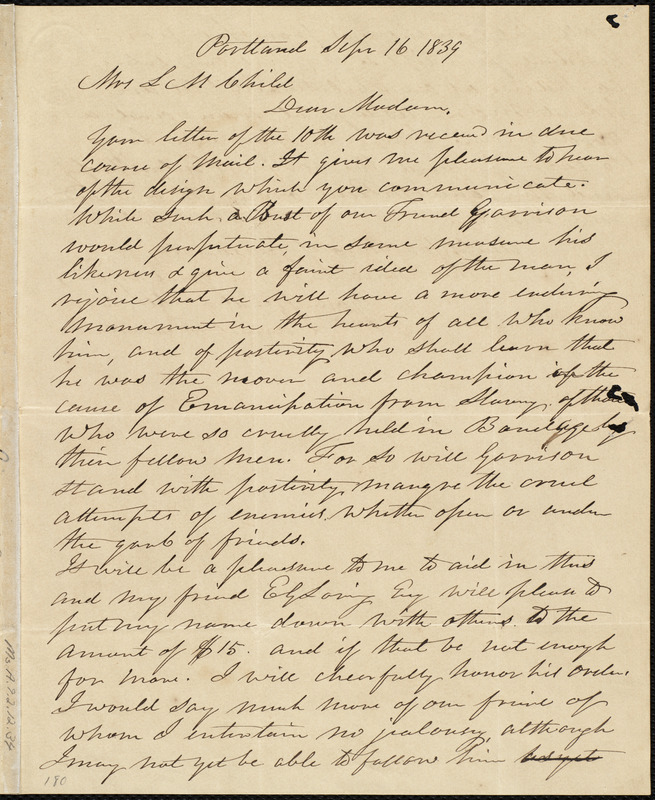 Portland Sepr 16 1839
Mrs L M Child
Dear Madam,
Your letter of the 10th was received in due
course of Mail. It gives me pleasure to hear
of the design which you communicate.
While such a Bust of our Friend Garrison
would perpetuate, in some measure his
likeness & give a faint idea of the man, I
rejoice that he will have a more enduring
monument in the hearts of all who know
him, and of postirity who shall learn that
he was the mover and champion of the
cause of Emancipation from Slavery of those
who were so cruelly held in Bondage by
their fellow men. For so will Garrison
stand with postirity, maugre the cruel
attempts of enemies, whether open or under
the garb of friends.
It will be a pleasure to me to aid in this
and my friend E G Loring Esq will please to
put my name down with others to the
amount of $15. and if that be not enough
for more. I will cheerfully honor his order.
I would say much more of our friend of
whom I entertain no jealousy although
I may not yet be able to follow him as yet
180
Ms. A. 9. 2. 12. 34